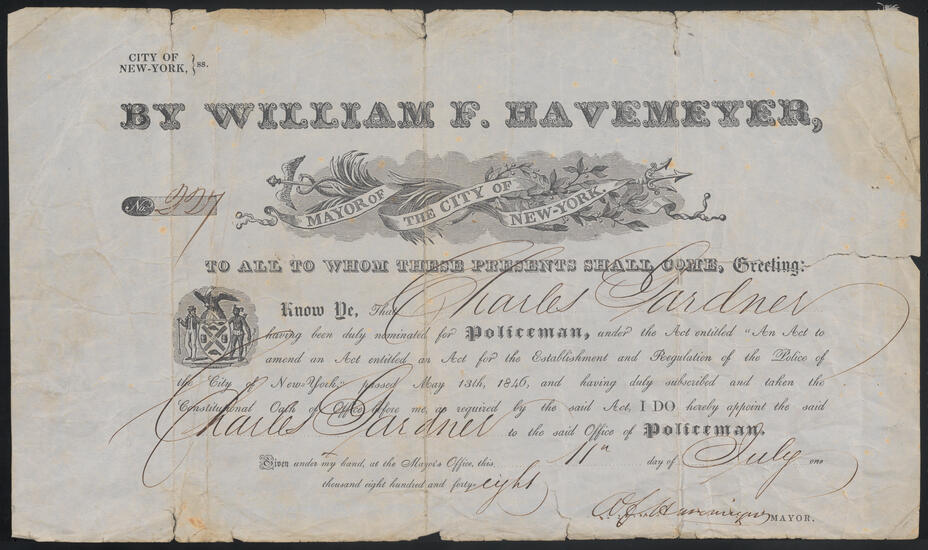 CITY OF
NEW-YORK, } ss.
BY WILLIAM F. HAVEMEYER,
MAYOR OF THE CITY OF NEW-YORK.
No.
TO ALL TO WHOM THESE PRESENTS SHALL COME, Greeting:
Know Ye, That Charles Gardner
having been duly nominated for Policeman, under the Act entitled "An Act to
amend an Act entitled an Act for the Establishment and Regulation of the Police of
the City of New-York," passed May 13th, 1846, and having duly subscribed and taken the
Constitutional Oath of Office before me, as required by the said Act, I DO hereby appoint the said
Charles Gardner to the said Office of Policeman.
Given under my hand, at the Mayor's Office, this 11th day of July one
thousand eight hundred and forty-eight
W. F. Havemeyer MAYOR.